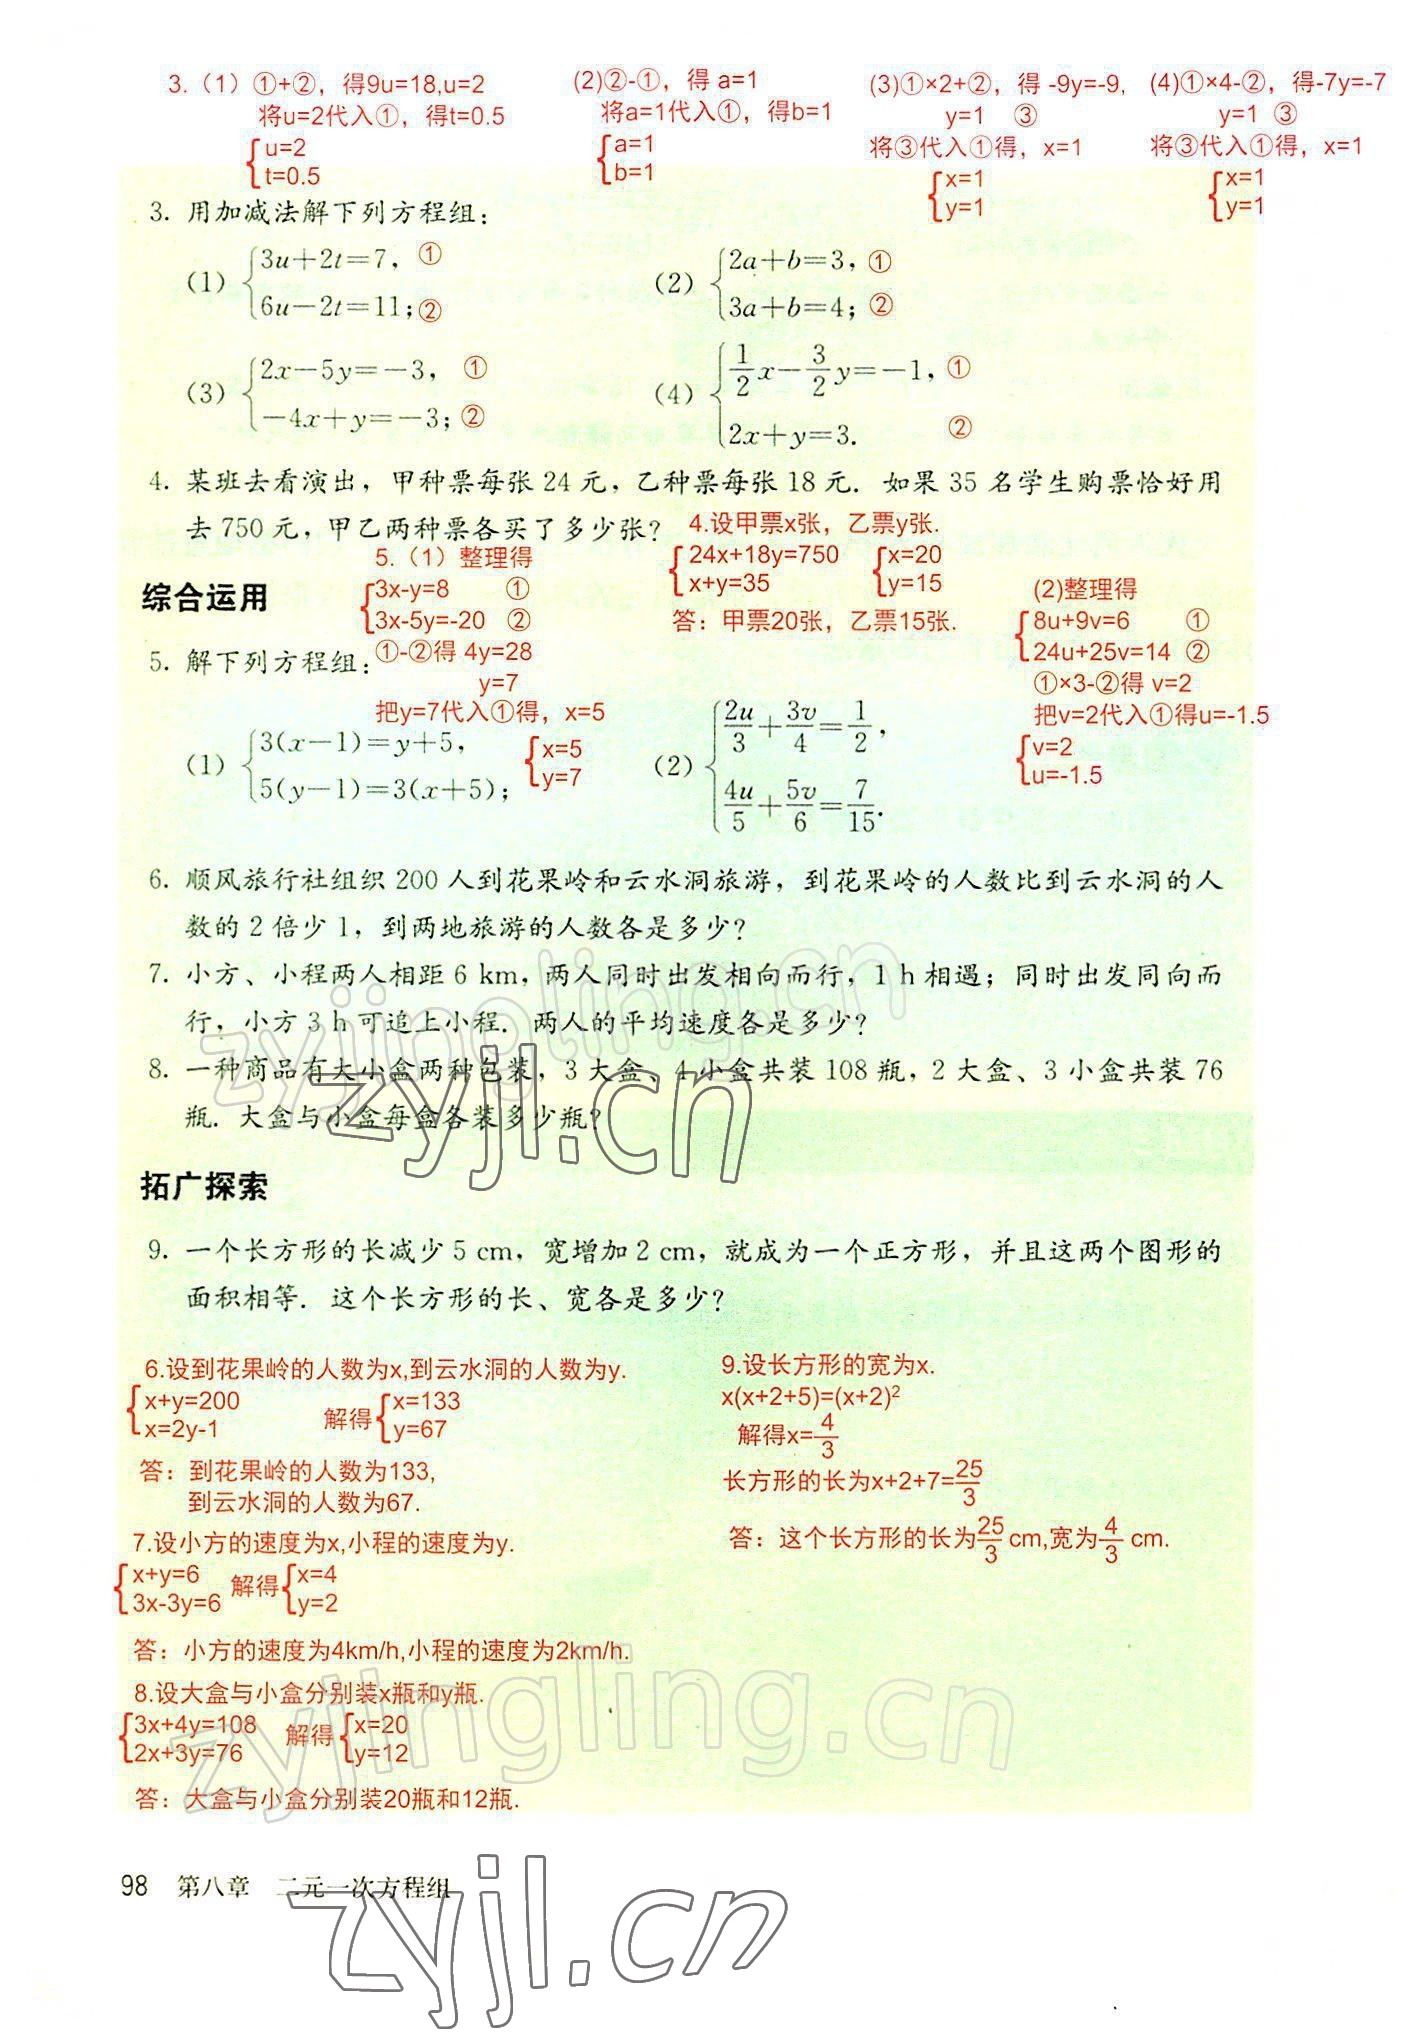 3.（1）①+②，得9u=18,u=2
将u=2代入①，得t=0.5
{u=2
t=0.5
(2)②-①，得 a=1
将a=1代入①，得b=1
{a=1
b=1
(3)①×2+②，得 -9y=-9,
y=1 ③
将③代入①得，x=1
{x=1
y=1
(4)①×4-②，得-7y=-7
y=1 ③
将③代入①得，x=1
{x=1
y=1
3. 用加减法解下列方程组：
(1) {3u+2t=7, ①
6u-2t=11; ②
(2) {2a+b=3, ①
3a+b=4; ②
(3) {2x-5y=-3, ①
-4x+y=-3; ②
(4) {1/2x-3/2y=-1, ①
2x+y=3. ②
4. 某班去看演出，甲种票每张 24 元，乙种票每张 18 元. 如果 35 名学生购票恰好用
去 750 元，甲乙两种票各买了多少张？
4.设甲票x张，乙票y张.
{24x+18y=750
x+y=35
{x=20
y=15
答：甲票20张，乙票15张.
综合运用
5.（1）整理得
{3x-y=8 ①
3x-5y=-20 ②
①-②得 4y=28
y=7
把y=7代入①得，x=5
{x=5
y=7
(2)整理得
{8u+9v=6 ①
24u+25v=14 ②
①×3-②得 v=2
把v=2代入①得u=-1.5
{v=2
u=-1.5
5. 解下列方程组：
(1) {3(x-1)=y+5,
5(y-1)=3(x+5);
(2) {2u/3+3v/4=1/2,
4u/5+5v/6=7/15.
6. 顺风旅行社组织 200 人到花果岭和云水洞旅游，到花果岭的人数比到云水洞的人
数的 2 倍少 1，到两地旅游的人数各是多少？
7. 小方、小程两人相距 6 km，两人同时出发相向而行，1 h 相遇；同时出发同向而
行，小方 3 h 可追上小程. 两人的平均速度各是多少？
8. 一种商品有大小盒两种包装，3 大盒、4 小盒共装 108 瓶，2 大盒、3 小盒共装 76
瓶. 大盒与小盒每盒各装多少瓶？
拓广探索
9. 一个长方形的长减少 5 cm，宽增加 2 cm，就成为一个正方形，并且这两个图形的
面积相等. 这个长方形的长、宽各是多少？
6.设到花果岭的人数为x,到云水洞的人数为y.
{x+y=200
x=2y-1
解得{x=133
y=67
答：到花果岭的人数为133,
到云水洞的人数为67.
7.设小方的速度为x,小程的速度为y.
{x+y=6
3x-3y=6
解得{x=4
y=2
答：小方的速度为4km/h,小程的速度为2km/h.
8.设大盒与小盒分别装x瓶和y瓶.
{3x+4y=108
2x+3y=76
解得{x=20
y=12
答：大盒与小盒分别装20瓶和12瓶.
9.设长方形的宽为x.
x(x+2+5)=(x+2)²
解得x=4/3
长方形的长为x+2+7=25/3
答：这个长方形的长为25/3 cm,宽为4/3 cm.
98 第八章 二元一次方程组
zyjl.cn
zyjl.cn